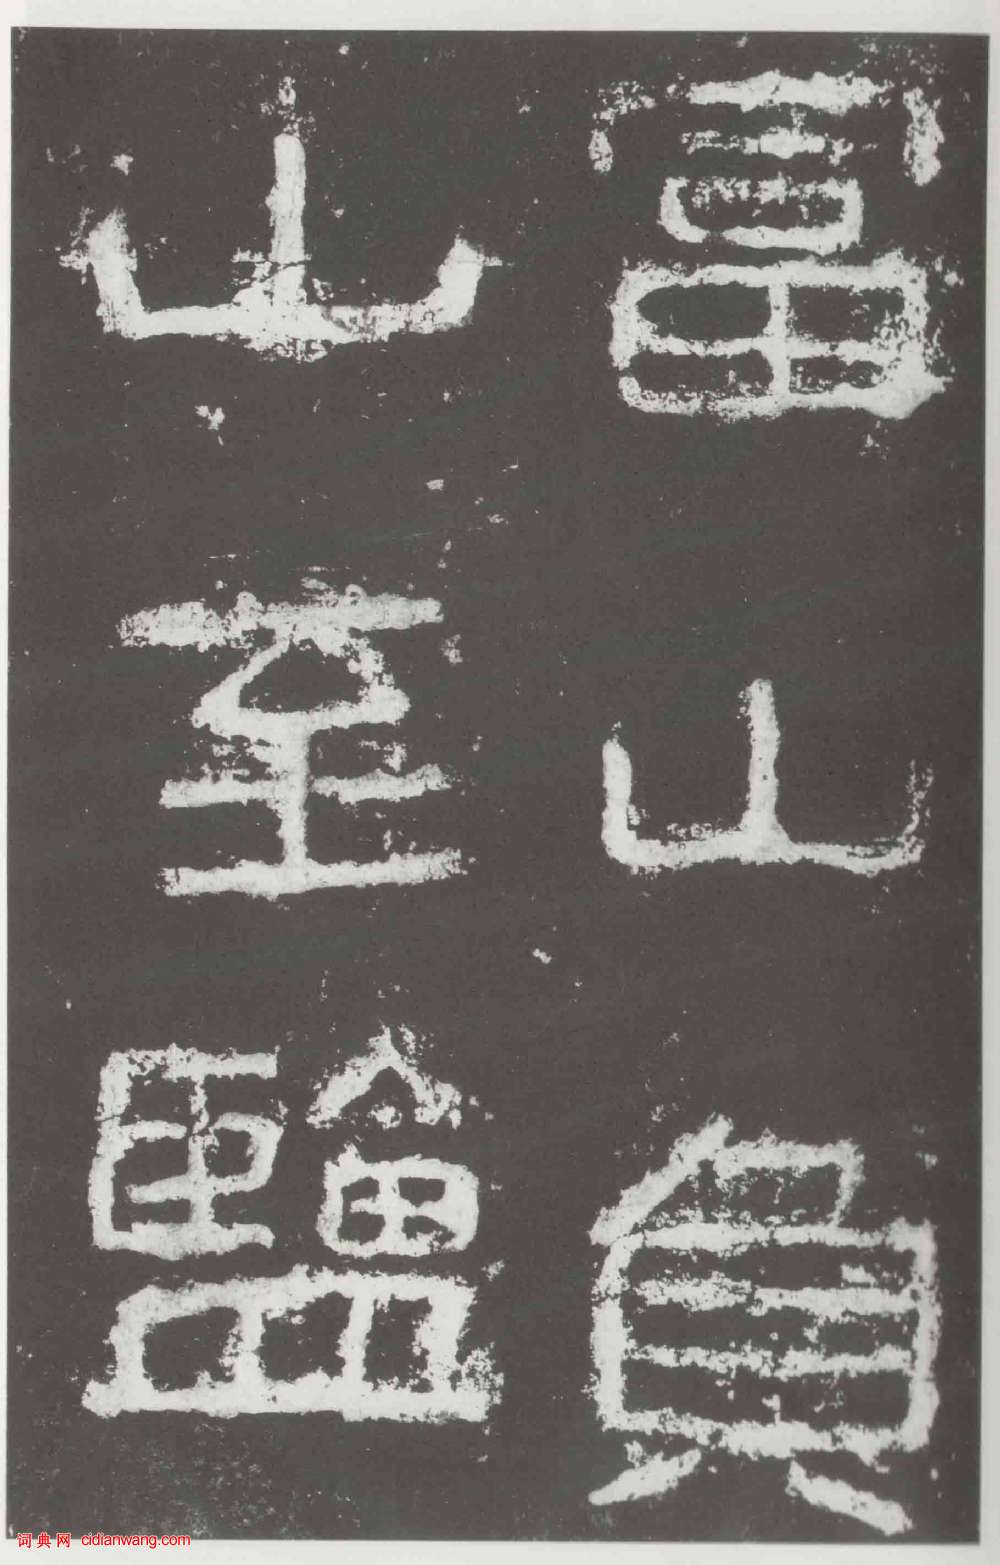 富山負
山至鹽
词典网 cidianwang.com